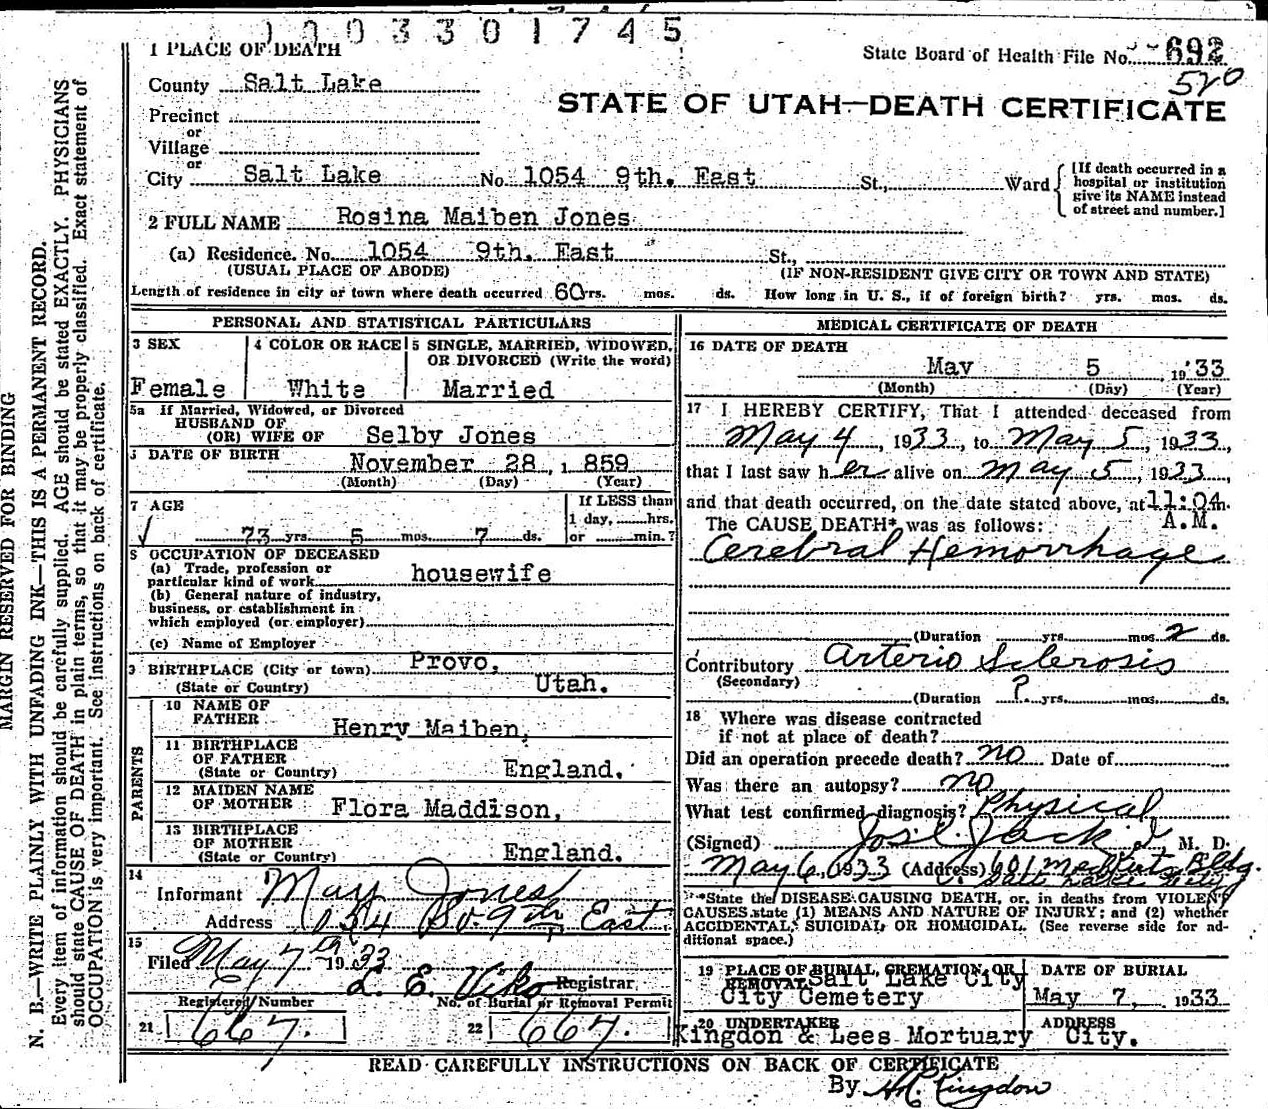 1003301745
1 PLACE OF DEATH
State Board of Health File No. 692
520
County Salt Lake
STATE OF UTAH—DEATH CERTIFICATE
Precinct
or
Village
or
City Salt Lake No. 1054 9th. East St., Ward
[If death occurred in a
hospital or institution
give its NAME instead
of street and number.]
2 FULL NAME Rosina Maiben Jones
(a) Residence. No. 1054 9th. East St.,
(USUAL PLACE OF ABODE) (IF NON-RESIDENT GIVE CITY OR TOWN AND STATE)
Length of residence in city or town where death occurred 60 yrs. mos. ds. How long in U. S., if of foreign birth? yrs. mos. ds.
PERSONAL AND STATISTICAL PARTICULARS
3 SEX
Female
4 COLOR OR RACE
White
5 SINGLE, MARRIED, WIDOWED,
OR DIVORCED (Write the word)
Married
5a If Married, Widowed, or Divorced
HUSBAND OF
(OR) WIFE OF Selby Jones
DATE OF BIRTH
November 28, 1859
(Month) (Day) (Year)
7 AGE
73 yrs. 5 mos. 7 ds.
If LESS than
1 day, hrs.
or min.?
8 OCCUPATION OF DECEASED
(a) Trade, profession or
particular kind of work housewife
(b) General nature of industry,
business, or establishment in
which employed (or employer)
(c) Name of Employer
9 BIRTHPLACE (City or town) Provo,
(State or Country) Utah.
PARENTS
10 NAME OF
FATHER Henry Maiben,
11 BIRTHPLACE
OF FATHER
(State or Country) England.
12 MAIDEN NAME
OF MOTHER Flora Maddison,
13 BIRTHPLACE
OF MOTHER
(State or Country) England.
14
Informant May Jones
Address 1054 So. 9th East
15
Filed May 7th 1933
L. E. Viko Registrar
Registered Number No. of Burial or Removal Permit
21 667. 22 667.
MEDICAL CERTIFICATE OF DEATH
16 DATE OF DEATH
May 5 1933
(Month) (Day) (Year)
17 I HEREBY CERTIFY, That I attended deceased from
May 4, 1933, to May 5, 1933
that I last saw her alive on May 5, 1933,
and that death occurred, on the date stated above, at 11:04 m.
A.M.
The CAUSE DEATH* was as follows:
Cerebral Hemorrhage
(Duration yrs. mos. 2 ds.
Contributory Arterio Sclerosis
(Secondary)
(Duration ? yrs. mos. ds.
18 Where was disease contracted
if not at place of death?
Did an operation precede death? no Date of
Was there an autopsy? no
What test confirmed diagnosis? Physical
(Signed) Jos. C. Jack M. D.
May 6, 1933 (Address) 601 Med Arts Bldg.
Salt Lake City
*State the DISEASE CAUSING DEATH, or, in deaths from VIOLENT
CAUSES state (1) MEANS AND NATURE OF INJURY; and (2) whether
ACCIDENTAL, SUICIDAL OR HOMICIDAL. (See reverse side for ad-
ditional space.)
19 PLACE OF BURIAL, CREMATION, OR
REMOVAL Salt Lake City
City Cemetery
DATE OF BURIAL
May 7, 1933
20 UNDERTAKER
Kingdon & Lees Mortuary
ADDRESS
City.
READ CAREFULLY INSTRUCTIONS ON BACK OF CERTIFICATE
By Kingdon
MARGIN RESERVED FOR BINDING
N. B.—WRITE PLAINLY WITH UNFADING INK—THIS IS A PERMANENT RECORD.
Every item of information should be carefully supplied. AGE should be stated EXACTLY. PHYSICIANS
should state CAUSE OF DEATH in plain terms, so that it may be properly classified. Exact statement of
OCCUPATION is very important. See instructions on back of certificate.